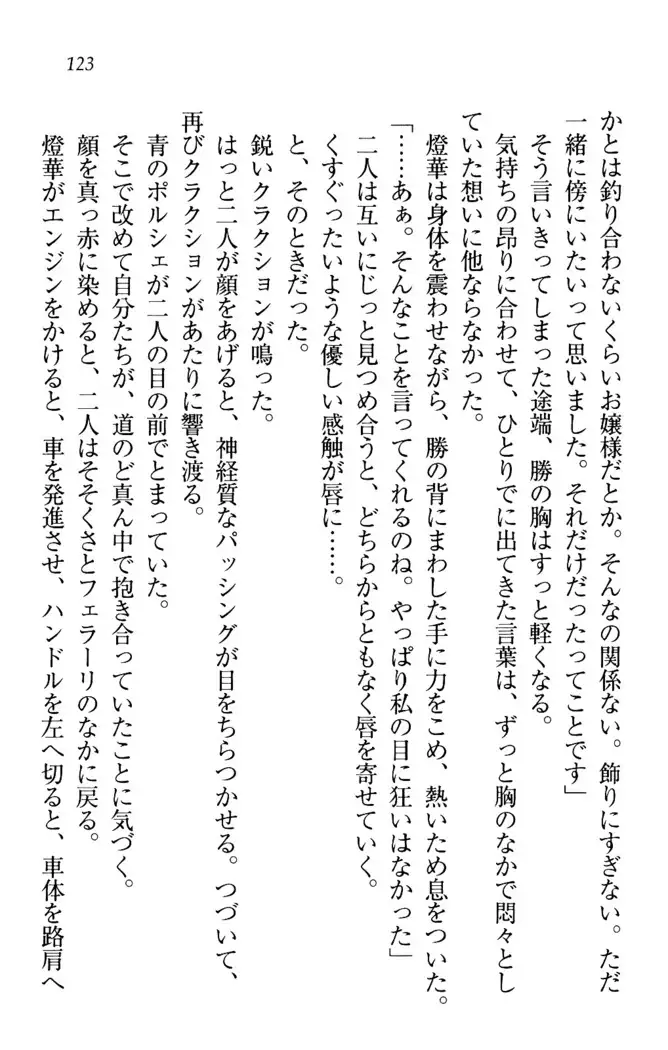 123
かとは釣り合わないくらいお嬢様だとか。そんなの関係ない。飾りにすぎない。ただ
一緒に傍にいたいって思いました。それだけだったってことです」
そう言いきってしまった途端、勝の胸はすっと軽くなる。
気持ちの昂りに合わせて、ひとりでに出てきた言葉は、ずっと胸のなかで悶々とし
ていた想いに他ならなかった。
燈華は身体を震わせながら、勝の背にまわした手に力をこめ、熱いため息をついた。
「……あぁ。そんなことを言ってくれるのね。やっぱり私の目に狂いはなかった」
二人は互いにじっと見つめ合うと、どちらからともなく唇を寄せていく。
くすぐったいような優しい感触が唇に……。
と、そのときだった。
鋭いクラクションが鳴った。
はっと二人が顔をあげると、神経質なパッシングが目をちらつかせる。つづいて、
再びクラクションがあたりに響き渡る。
青のポルシェが二人の目の前でとまっていた。
そこで改めて自分たちが、道のど真ん中で抱き合っていたことに気づく。
顔を真っ赤に染めると、二人はそそくさとフェラーリのなかに戻る。
燈華がエンジンをかけると、車を発進させ、ハンドルを左へ切ると、車体を路肩へ